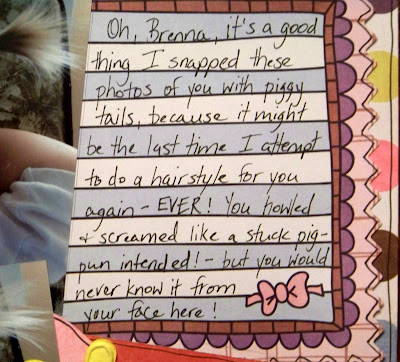 Oh, Brenna, it's a good
thing I snapped these
photos of you with piggy
tails, because it might
be the last time I attempt
to do a hairstyle for you
again - EVER! You howled
& screamed like a stuck pig -
pun intended! - but you would
never know it from
your face here!